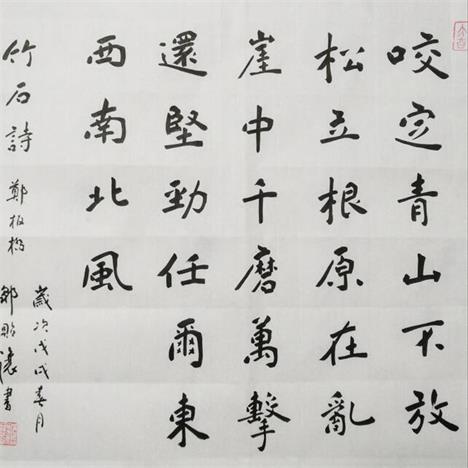 咬定青山不放
松立根原在亂
崖中千磨萬擊
還堅勁任爾東
西南北風
歲次戊戌春月
竹石詩 鄭板橋 書